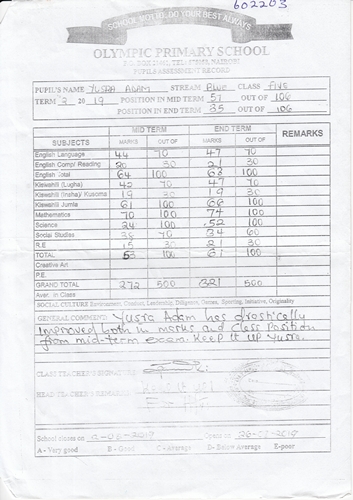 602203
SCHOOL MOTTO: DO YOUR BEST ALWAYS
OLYMPIC PRIMARY SCHOOL
PUPILS ASSESSMENT RECORD
PUPIL'S NAME YUSRA ADAM STREAM BLUE CLASS FIVE
TERM 2 2019 POSITION IN MID TERM 57 OUT OF 106
POSITION IN END TERM 35 OUT OF 106
MID TERM END TERM REMARKS
SUBJECTS MARKS OUT OF MARKS OUT OF
English Language 44 70 47 70
English Comp/ Reading 20 30 21 30
English Total 64 100 68 100
Kiswahili (Lugha) 42 70 47 70
Kiswahili (Insha)/ Kusoma 19 30 19 30
Kiswahili Jumla 61 100 66 100
Mathematics 70 100 74 100
Science 24 100 52 100
Social Studies 38 70 34 60
R.E 15 30 21 30
TOTAL 53 100 61 100
Creative Art
P.E.
GRAND TOTAL 272 500 321 500
Aver. in Class
SOCIAL CULTURE Environment, Conduct, Leadership, Diligent, Games, Sporting, Initiative, Originality
GENERAL COMMENT Yusra Adam has drastically
improved both in marks and Class position
from mid-term exam. Keep it UP Yusra.
CLASS TEACHER'S SIGNATURE
HEAD TEACHER'S REMARKS
School closes on Opens on
A - Very good B - Good C - Average D- Below Average E-poor